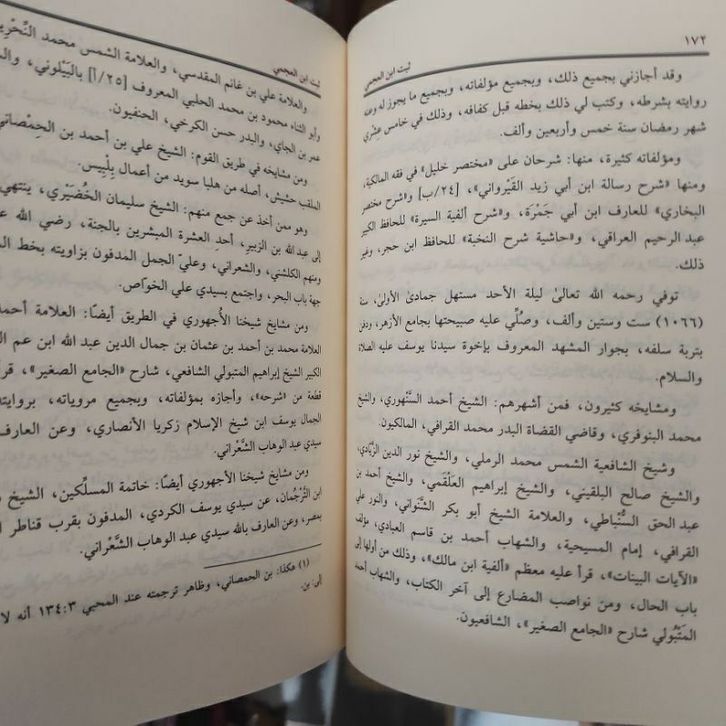 ١٧٢
ثبت ابن العجمي
وقد أجازني بجميع ذلك، وبجميع مؤلفاته، وبجميع ما يجوز له وعنه
روايته بشرطه، وكتب لي ذلك بخطه قبل كفافه، وذلك في خامس عِشْري
شهر رمضان سنة خمس وأربعين وألف.
ومؤلفاته كثيرة، منها: شرحان على «مختصر خليل» في فقه المالكية،
ومنها «شرح رسالة ابن أبي زيد القَيْرواني»، [٢٤/ب] و«شرح مختصر
البخاري» للعارف ابن أبي جَمْرَة، و«شرح ألفية السيرة» للحافظ الكبير
عبد الرحيم العراقي، و«حاشية شرح النخبة» للحافظ ابن حجر، وغير
ذلك.
توفي رحمه الله تعالى ليلة الأحد مستهل جمادى الأولى، سنة
(١٠٦٦) ست وستين وألف، وصُلِّي عليه صبيحتها بجامع الأزهر، ودفن
بتربة سلفه، بجوار المشهد المعروف بإخوة سيدنا يوسف عليه الصلاة
والسلام.
ومشايخه كثيرون، فمن أشهرهم: الشيخ أحمد السَّنْهوري، والشيخ
محمد البنوفري، وقاضي القضاة البدر محمد القرافي، المالكيون.
وشيخ الشافعية الشمس محمد الرملي، والشيخ نور الدين الزِّيَادي،
والشيخ صالح البلقيني، والشيخ إبراهيم العَلْقَمي، والشيخ أحمد بن
عبد الحق السُّنْباطي، والعلامة الشيخ أبو بكر الشَّنَواني، والنور علي
القرافي، إمام المسيحية، والشهاب أحمد بن قاسم العبادي، مؤلف
«الآيات البينات»، قرأ عليه معظم «ألفية ابن مالك»، وذلك من أولها إلى
باب الحال، ومن نواصب المضارع إلى آخر الكتاب، والشهاب أحمد
المَتْبُولي شارح «الجامع الصغير»، الشافعيون.
ثبت ابن العجمي
والعلامة علي بن غانم المقدسي، والعلامة الشمس محمد النِّحْرِير
وأبو الثناء محمود بن محمد الحلبي المعروف [٢٥/أ] بالبَيْلوني،
عمر بن الجاي، والبدر حسن الكرخي، الحنفيون.
ومن مشايخه في طريق القوم: الشيخ علي بن أحمد بن الحِمْصاني
الملقب حشيش، أصله من هليا سويد من أعمال بِلْبِيس.
وهو ممن أخذ عن جمع منهم: الشيخ سليمان الخُضَيْري، ينتهي
إلى عبد الله بن الزبير، أحد العشرة المبشرين بالجنة، رضي الله
ومنهم الكلشني، والشعراني، وعليّ الجمل المدفون بزاويته بخط
جهة باب البحر، واجتمع بسيدي علي الخوّاص.
ومن مشايخ شيخنا الأُجهوري في الطريق أيضًا: العلامة أحمد
العلامة محمد بن أحمد بن عثمان بن جمال الدين عبد الله ابن عم
الكبير الشيخ إبراهيم المتبولي الشافعي، شارح «الجامع الصغير»، قرأ
قطعة من «شرحه»، وأجازه بمؤلفاته، وبجميع مروياته، بروايته
الجمال يوسف ابن شيخ الإسلام زكريا الأنصاري، وعن العارف
سيدي عبد الوهاب الشَّعْراني.
ومن مشايخ شيخنا الأجهوري أيضًا: خاتمة المسلِّكين، الشيخ
ابن التُرْجُمان، عن سيدي يوسف الكردي، المدفون بقرب قناطر
بمصر، وعن العارف بالله سيدي عبد الوهاب الشَّعْراني.
(١) هكذا: بن الحمصاني، وظاهر ترجمته عند المحبي ٣:١٣٤ أنه لا
إلى: بن.